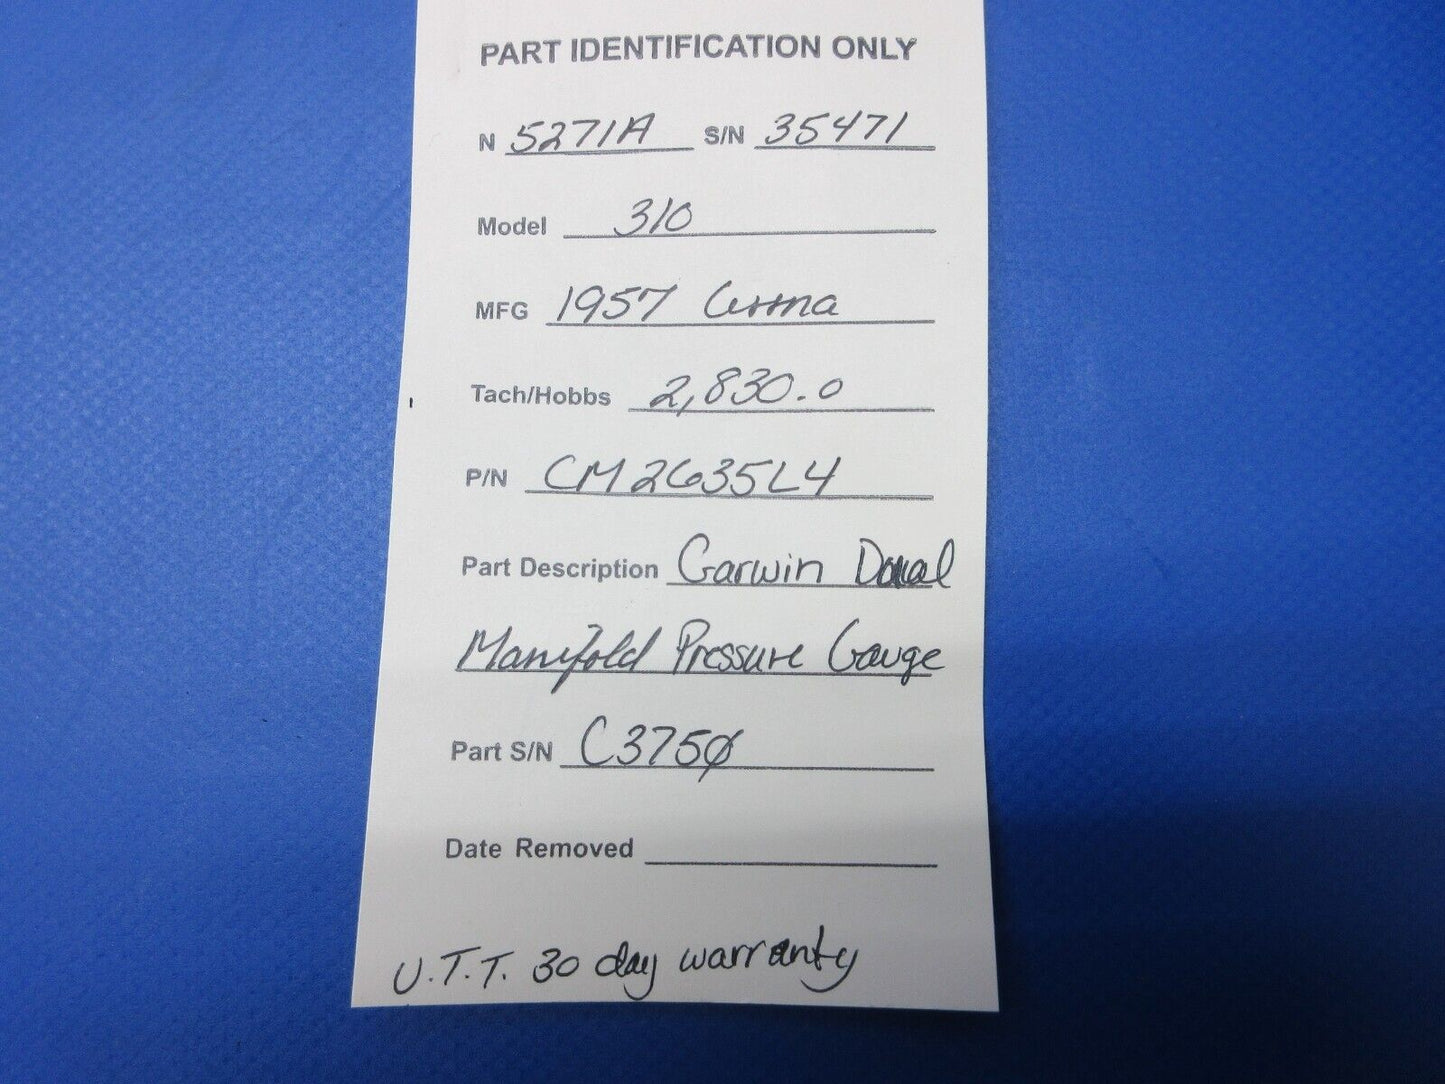 PART IDENTIFICATION ONLY
N 5271A S/N 35471
Model 310
MFG 1957 Cessna
Tach/Hobbs 2,830.0
P/N CM2635L4
Part Description Garwin Dual
Manifold Pressure Gauge
Part S/N C3750
Date Removed
U.T.T. 30 day warranty